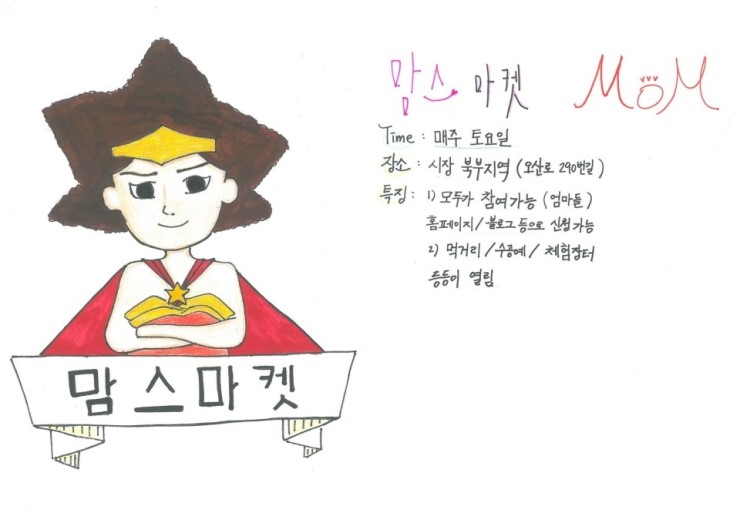 맘스 마켓
MOM
Time : 매주 토요일
장소 : 시장 북부지역 (오산로 290번길)
특징 : 1) 모두가 참여가능 (엄마들)
홈페이지/블로그 등으로 신청가능
2) 먹거리/수공예/체험장터
등등이 열림
맘스마켓